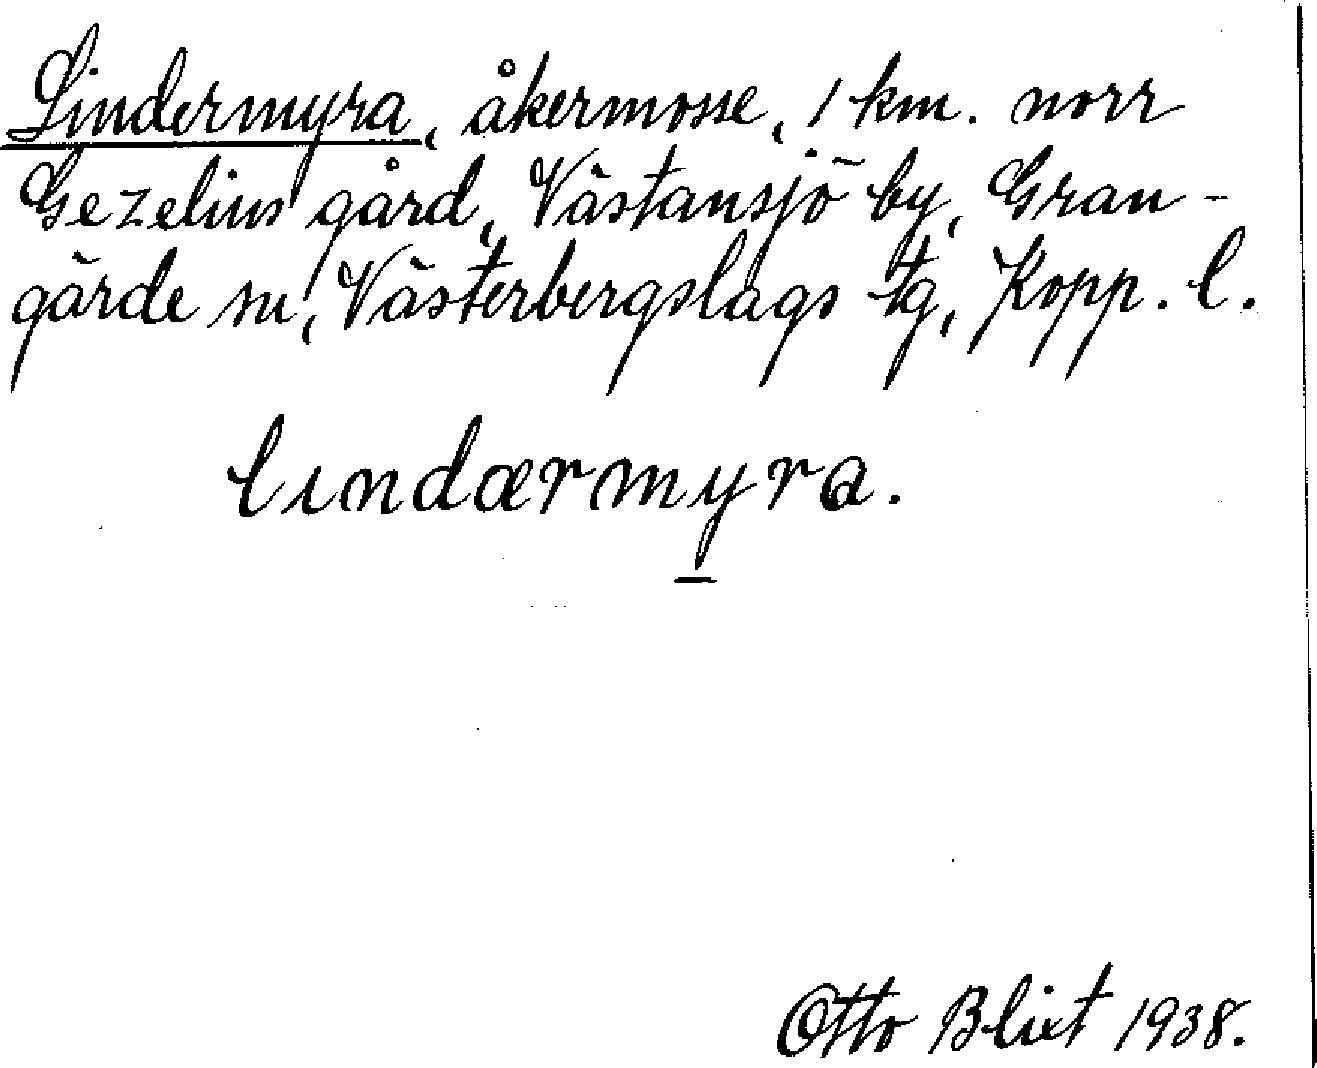 Lindermyra, åkermosse, 1 km. norr
Gezelius gård, Västansjö by, Gran-
gärde sn, Västerbergslags tg, Kopp. l.
lındærmyra.
Otto Blixt 1938.